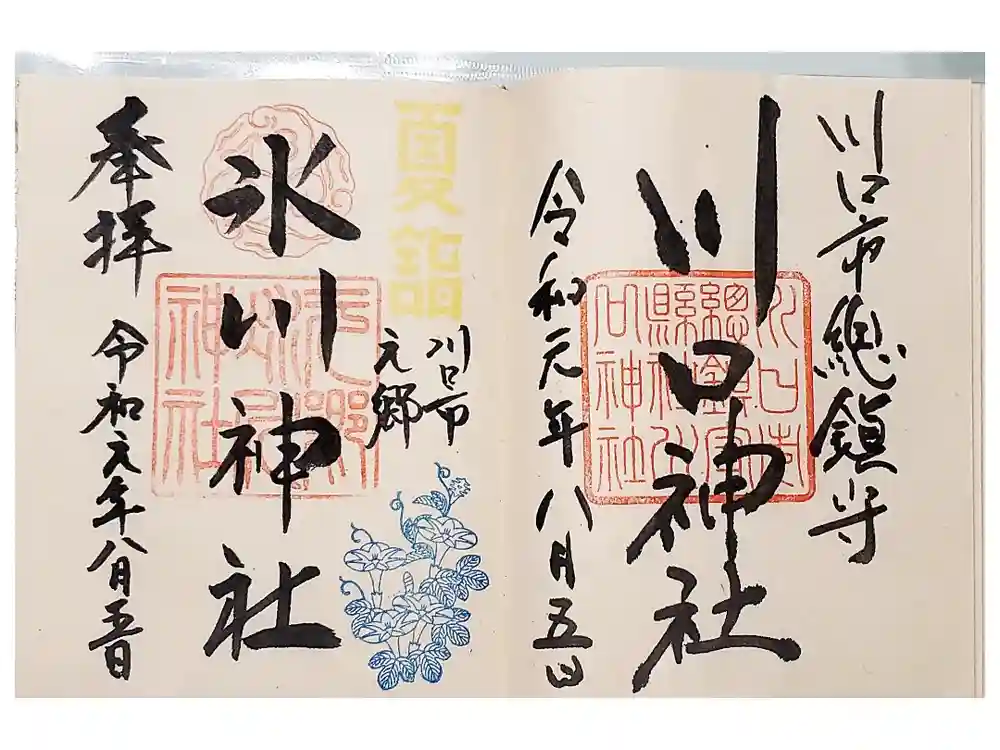 川口市總鎮守
川口神社
令和元年八月五日
川口市總鎮守縣社川口神社
夏詣
川口市
元郷
氷川神社
元郷氷川神社
奉拝
令和元年八月五日